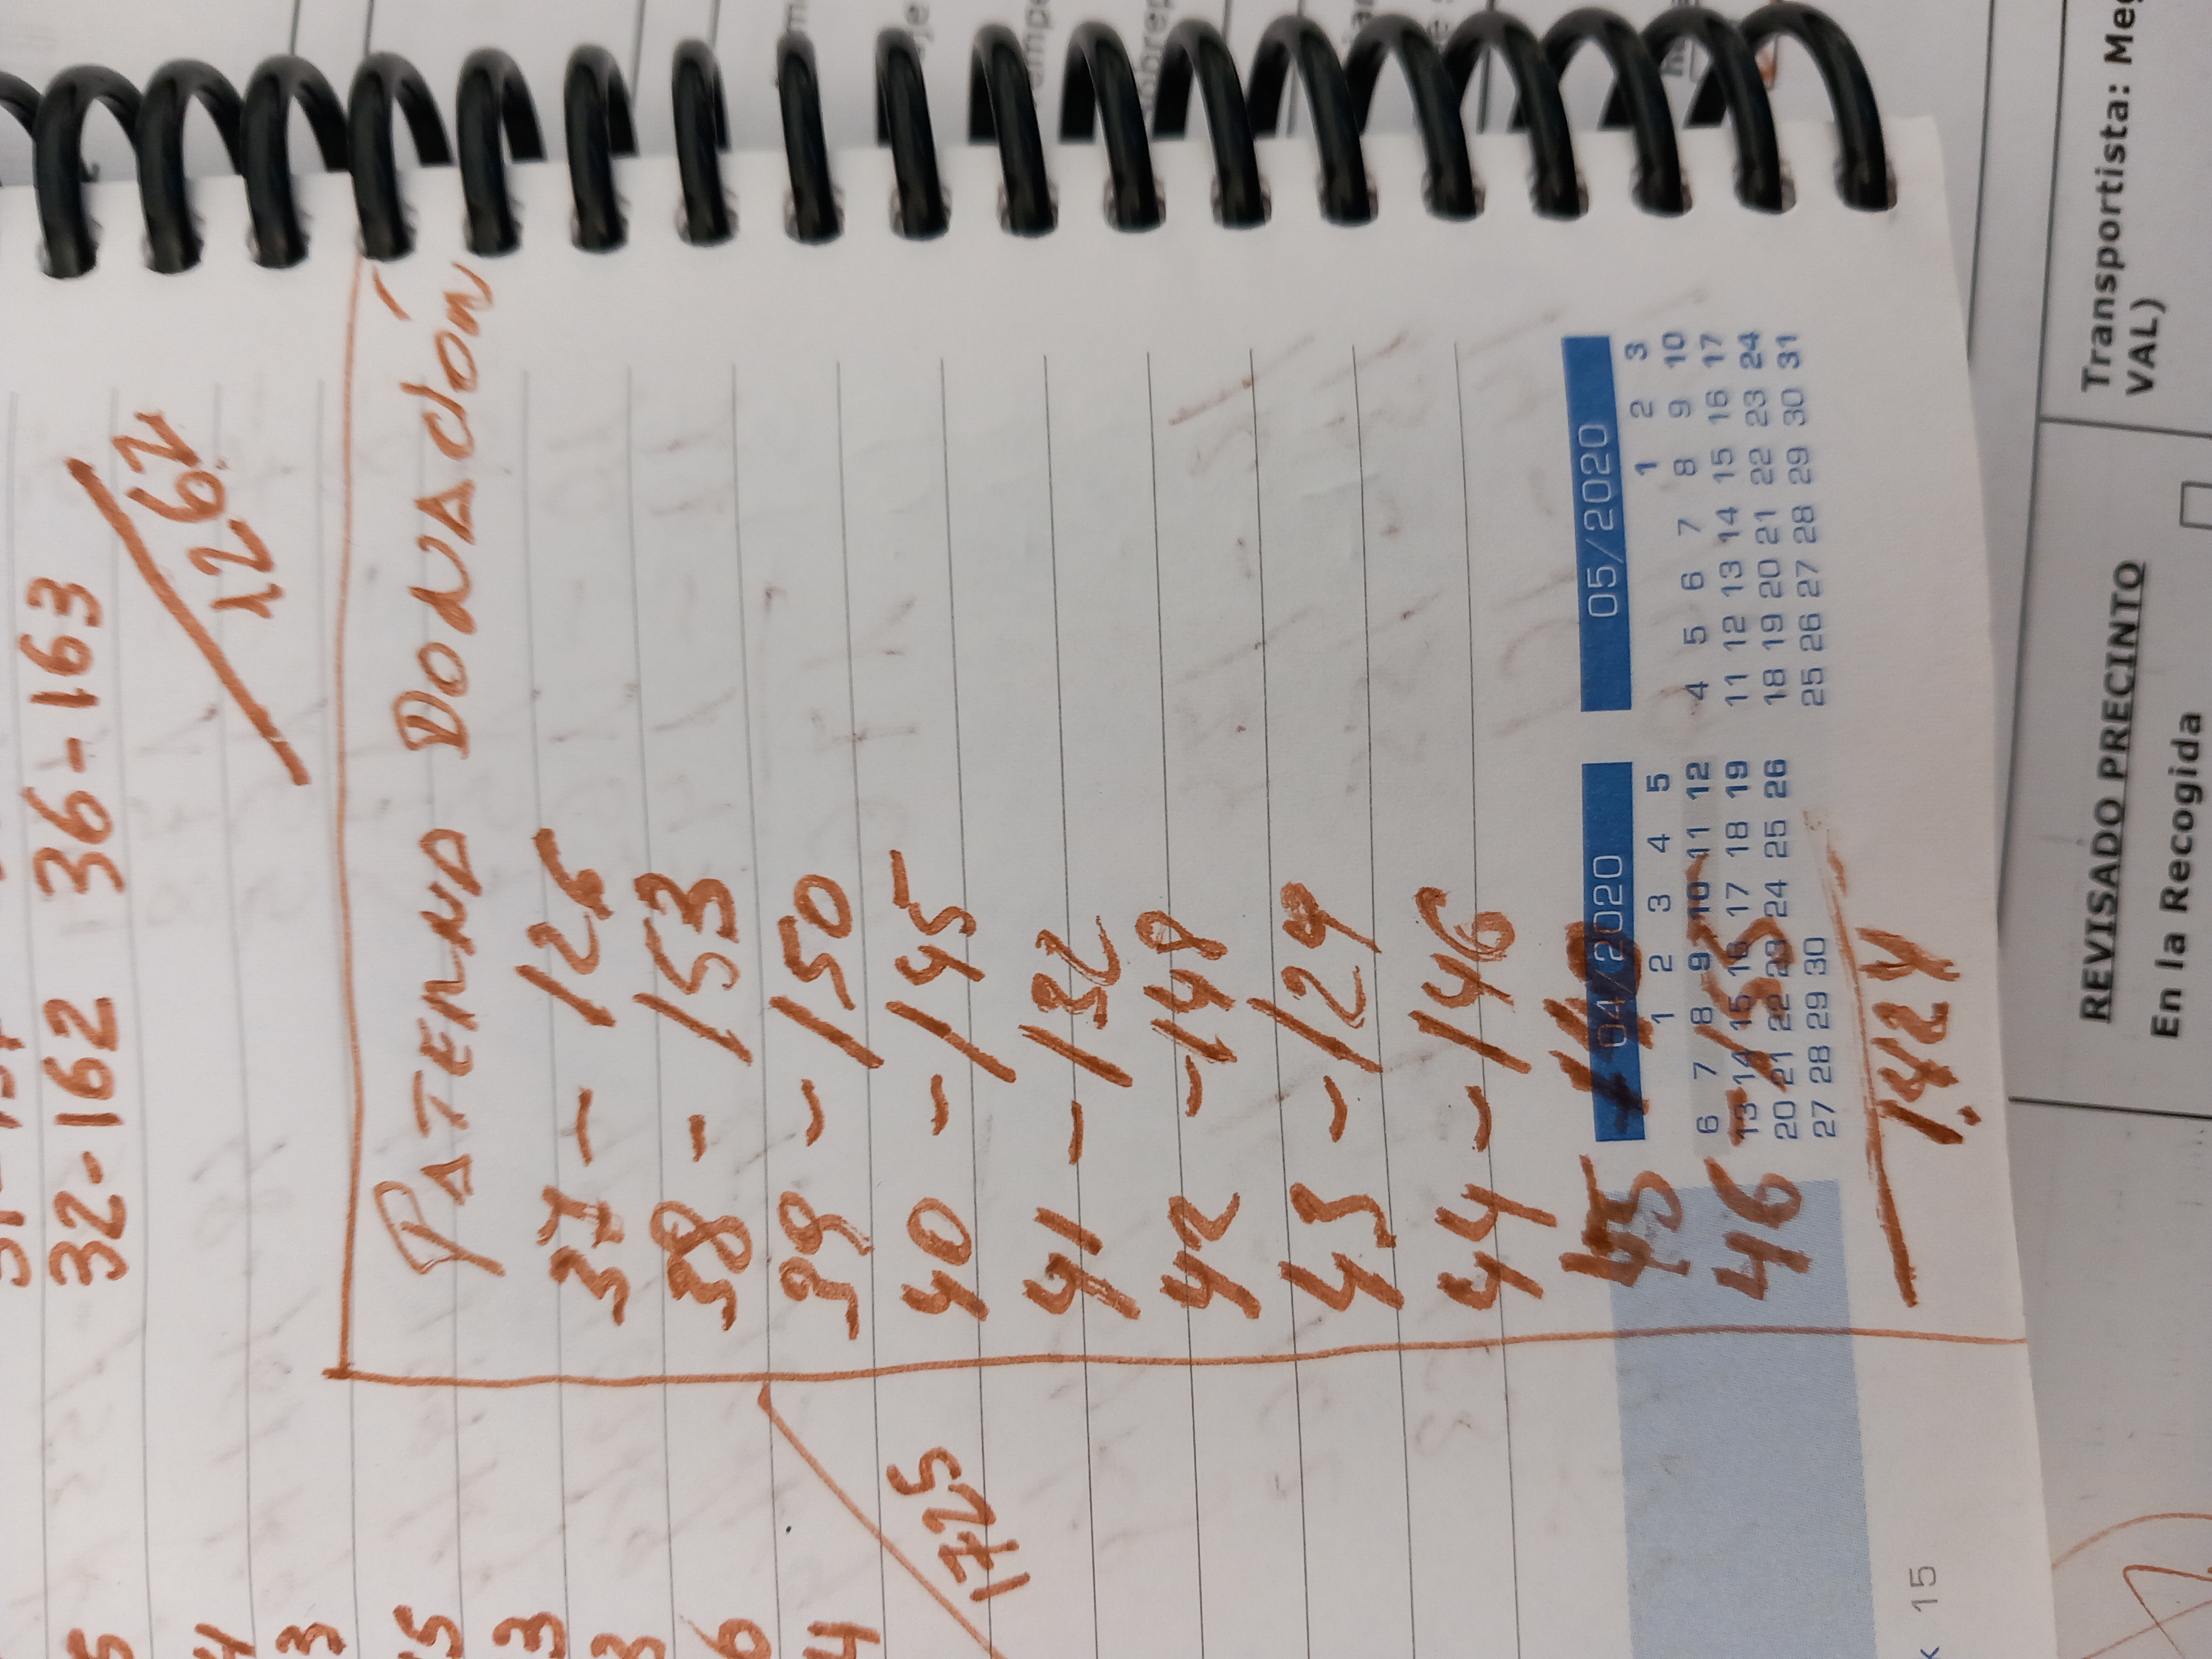 32-162 36-163
1262
PATERNA DONACIÓN
37 - 126
38 - 153
39 - 150
40 - 145
41 - 132
42 - 149
43 - 129
44 - 146
45
46
1.424
1725
04/2020
1 2 3 4 5
6 7 8 9 10 11 12
13 14 15 16 17 18 19
20 21 22 23 24 25 26
27 28 29 30
05/2020
1 2 3
4 5 6 7 8 9 10
11 12 13 14 15 16 17
18 19 20 21 22 23 24
25 26 27 28 29 30 31
15
REVISADO PRECINTO
En la Recogida
Transportista:
VAL)